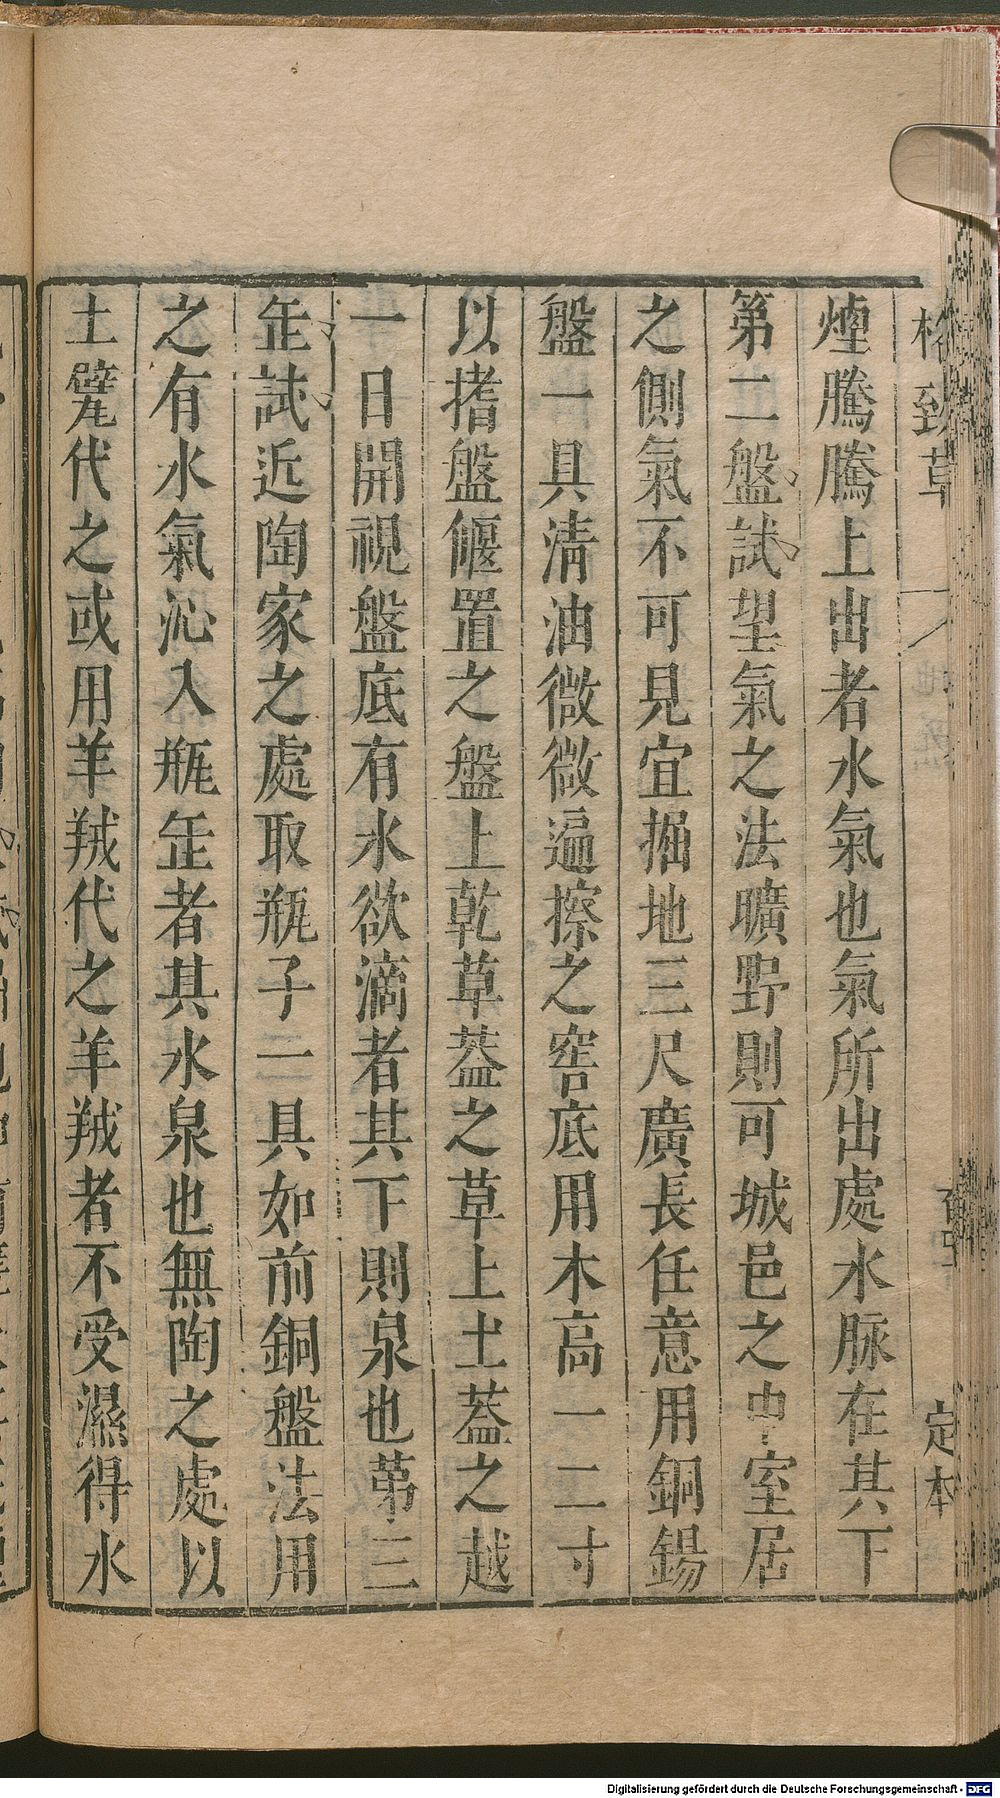 格致草
定本
煙騰騰上出者水氣也氣所出處水脉在其下
第二盤試望氣之法曠野則可城邑之中室居
之側氣不可見宜掘地三尺廣長任意用銅錫
盤一具清油微微遍擦之窖底用木高一二寸
以搘盤偃置之盤上乾草蓋之草上土蓋之越
一日開視盤底有水欲滴者其下則泉也第三
缶試近陶家之處取瓶子一具如前銅盤法用
之有水氣沁入瓶缶者其水泉也無陶之處以
土甓代之或用羊羢代之羊羢者不受濕得水
Digitalisierung gefördert durch die Deutsche Forschungsgemeinschaft - DFG